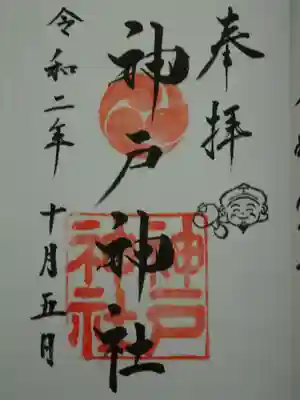 奉拝
神戸神社
神戸
神社
令和二年
十月五日